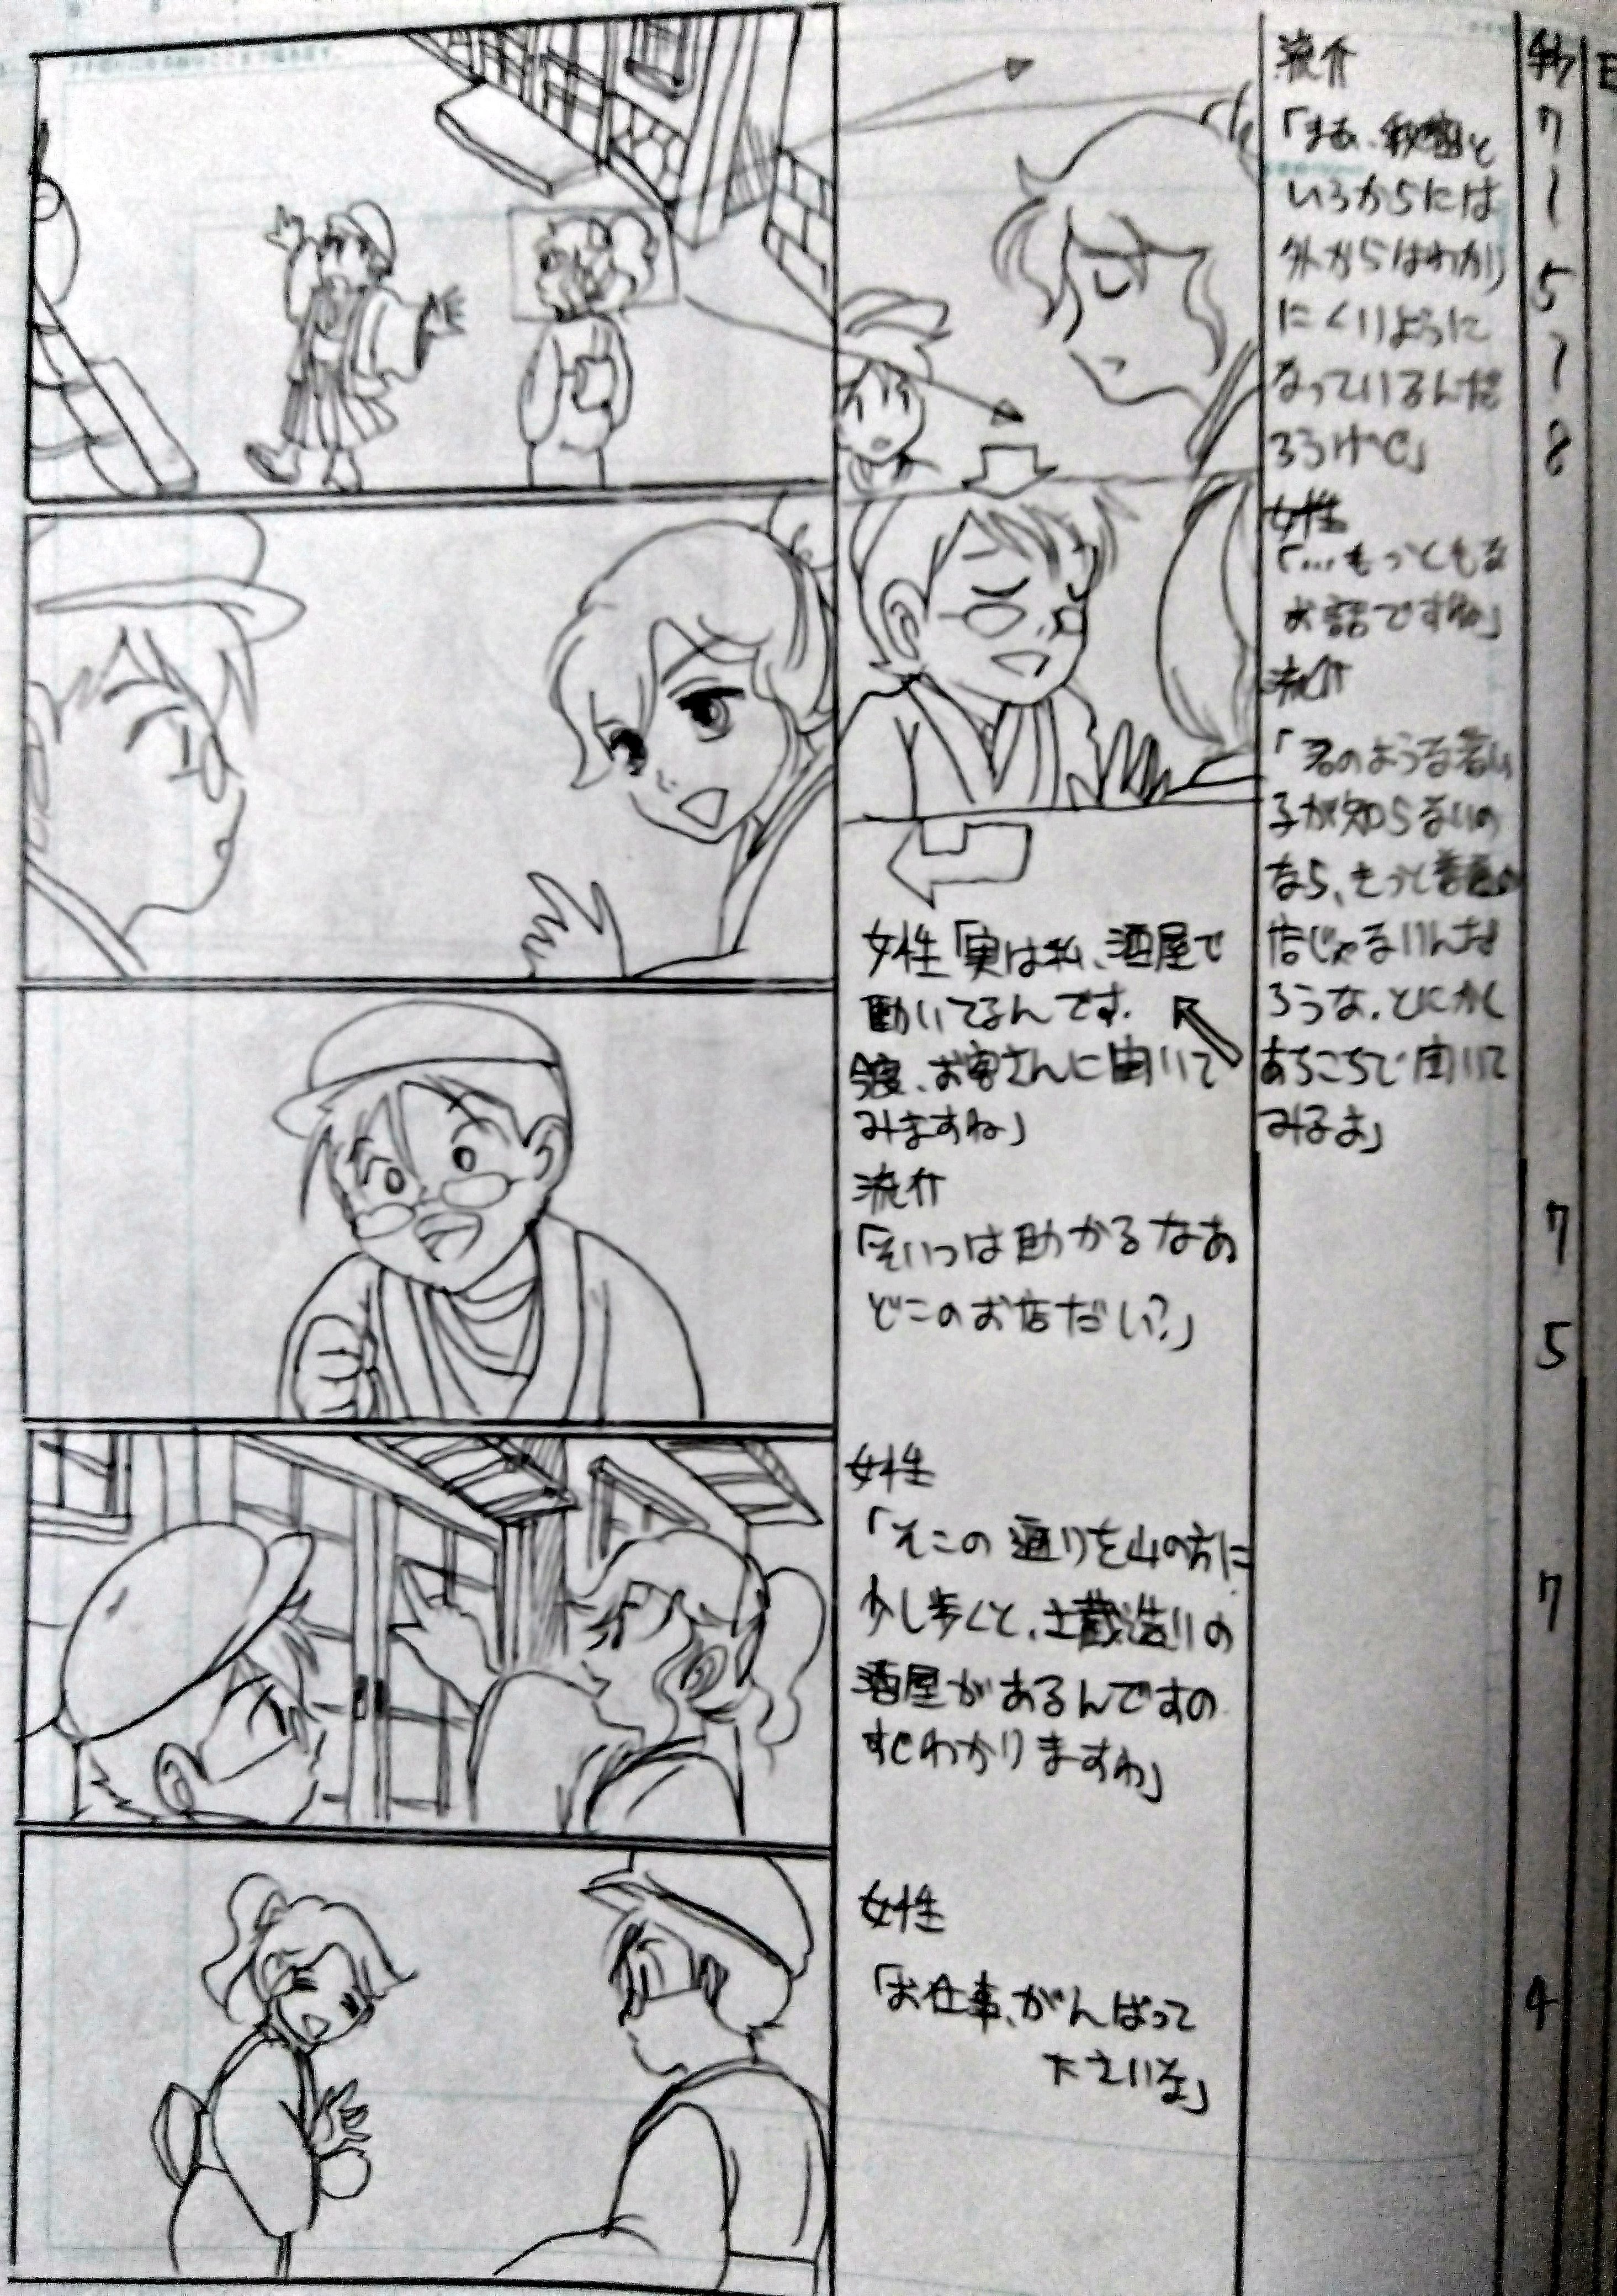 流介
「まあ、秘密と
いうからには
外からはわかり
にくいように
なっているんだ
ろうけど」
女性
「…もっともな
お話ですね」
流介
「君のような若い
子が知らないの
なら、きっと普通の
店じゃないんだ
ろうな。とにかく
あちこちで聞いて
みるよ」
女性「実は私、酒屋で
働いてるんです。
今度、お客さんに聞いて
みますね」
流介
「そいつは助かるなあ
どこのお店だい?」
女性
「そこの通りを山の方に
少し歩くと、土蔵造りの
酒屋があるんですの
すぐわかりますわ」
女性
「お仕事、がんばって
下さいな」
秒
7
〜
5
〜
8
7
5
7
4